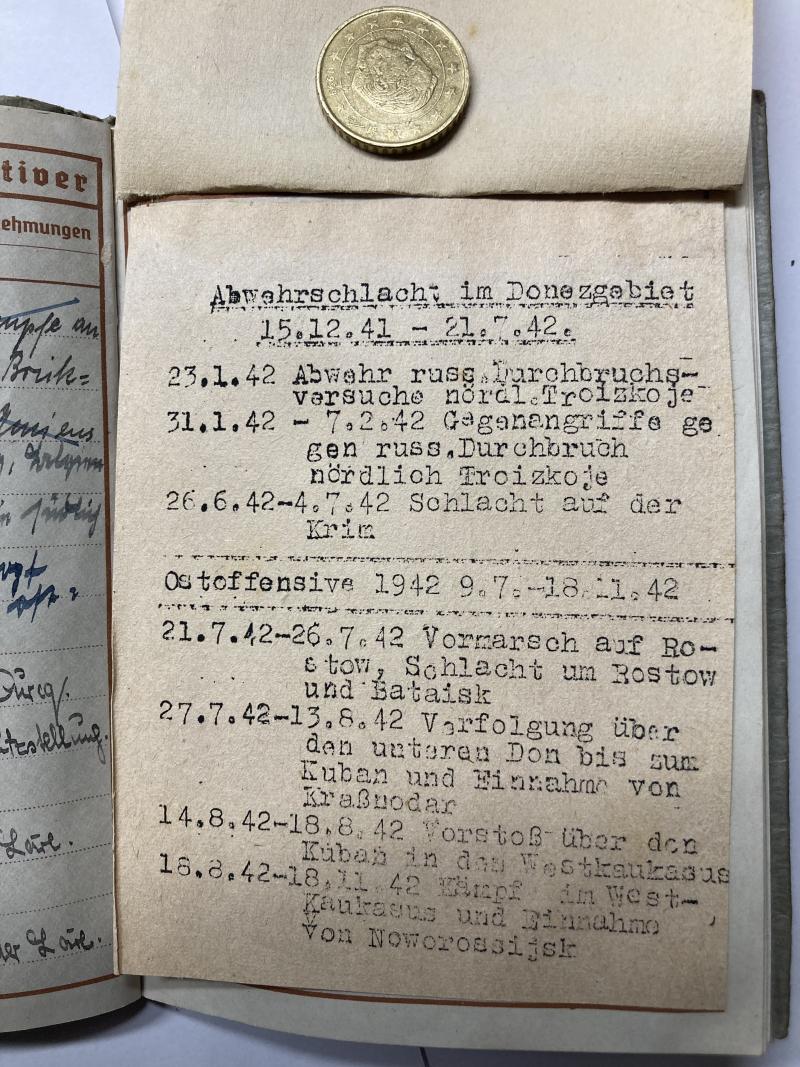 tiver
ehmungen
Abwehrschlacht im Donezgebiet
15.12.41 - 21.7.42.
23.1.42 Abwehr russ.Durchbruchs-
versuche nördl.Troizkoje
31.1.42 - 7.2.42 Gegenangriffe ge
gen russ.Durchbruch
nördlich Troizkoje
26.6.42-4.7.42 Schlacht auf der
Krim
Ostoffensive 1942 9.7.-18.11.42
21.7.42-26.7.42 Vormarsch auf Ro-
stow, Schlacht um Rostow
und Bataisk
27.7.42-13.8.42 Verfolgung über
den unteren Don bis zum
Kuban und Einnahme von
Kraßnodar
14.8.42-18.8.42 Vorstoß über den
Kuban in den Westkaukasus
18.8.42-18.11.42 Kämpf im West-
Kaukasus und Einnahme
von Noworossijsk